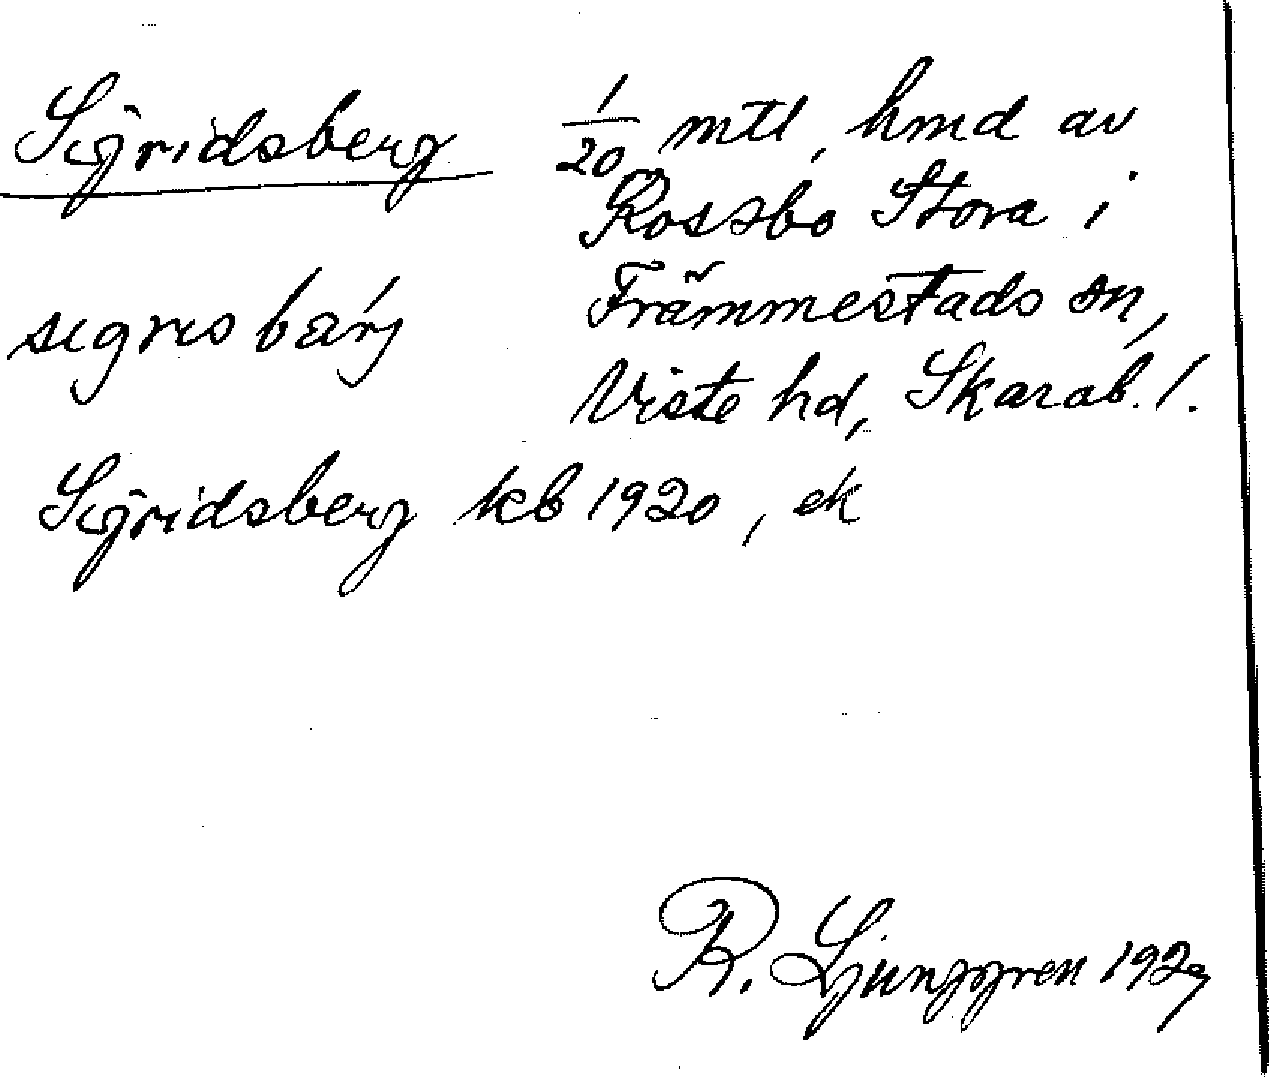 Sigridsberg 1/20 mtl, hmd av
Rossbo Stora i
sigris bärj Främmestads sn,
Viste hd, Skarab. l.
Sigridsberg kb 1920, ek
R. Ljunggren 1929